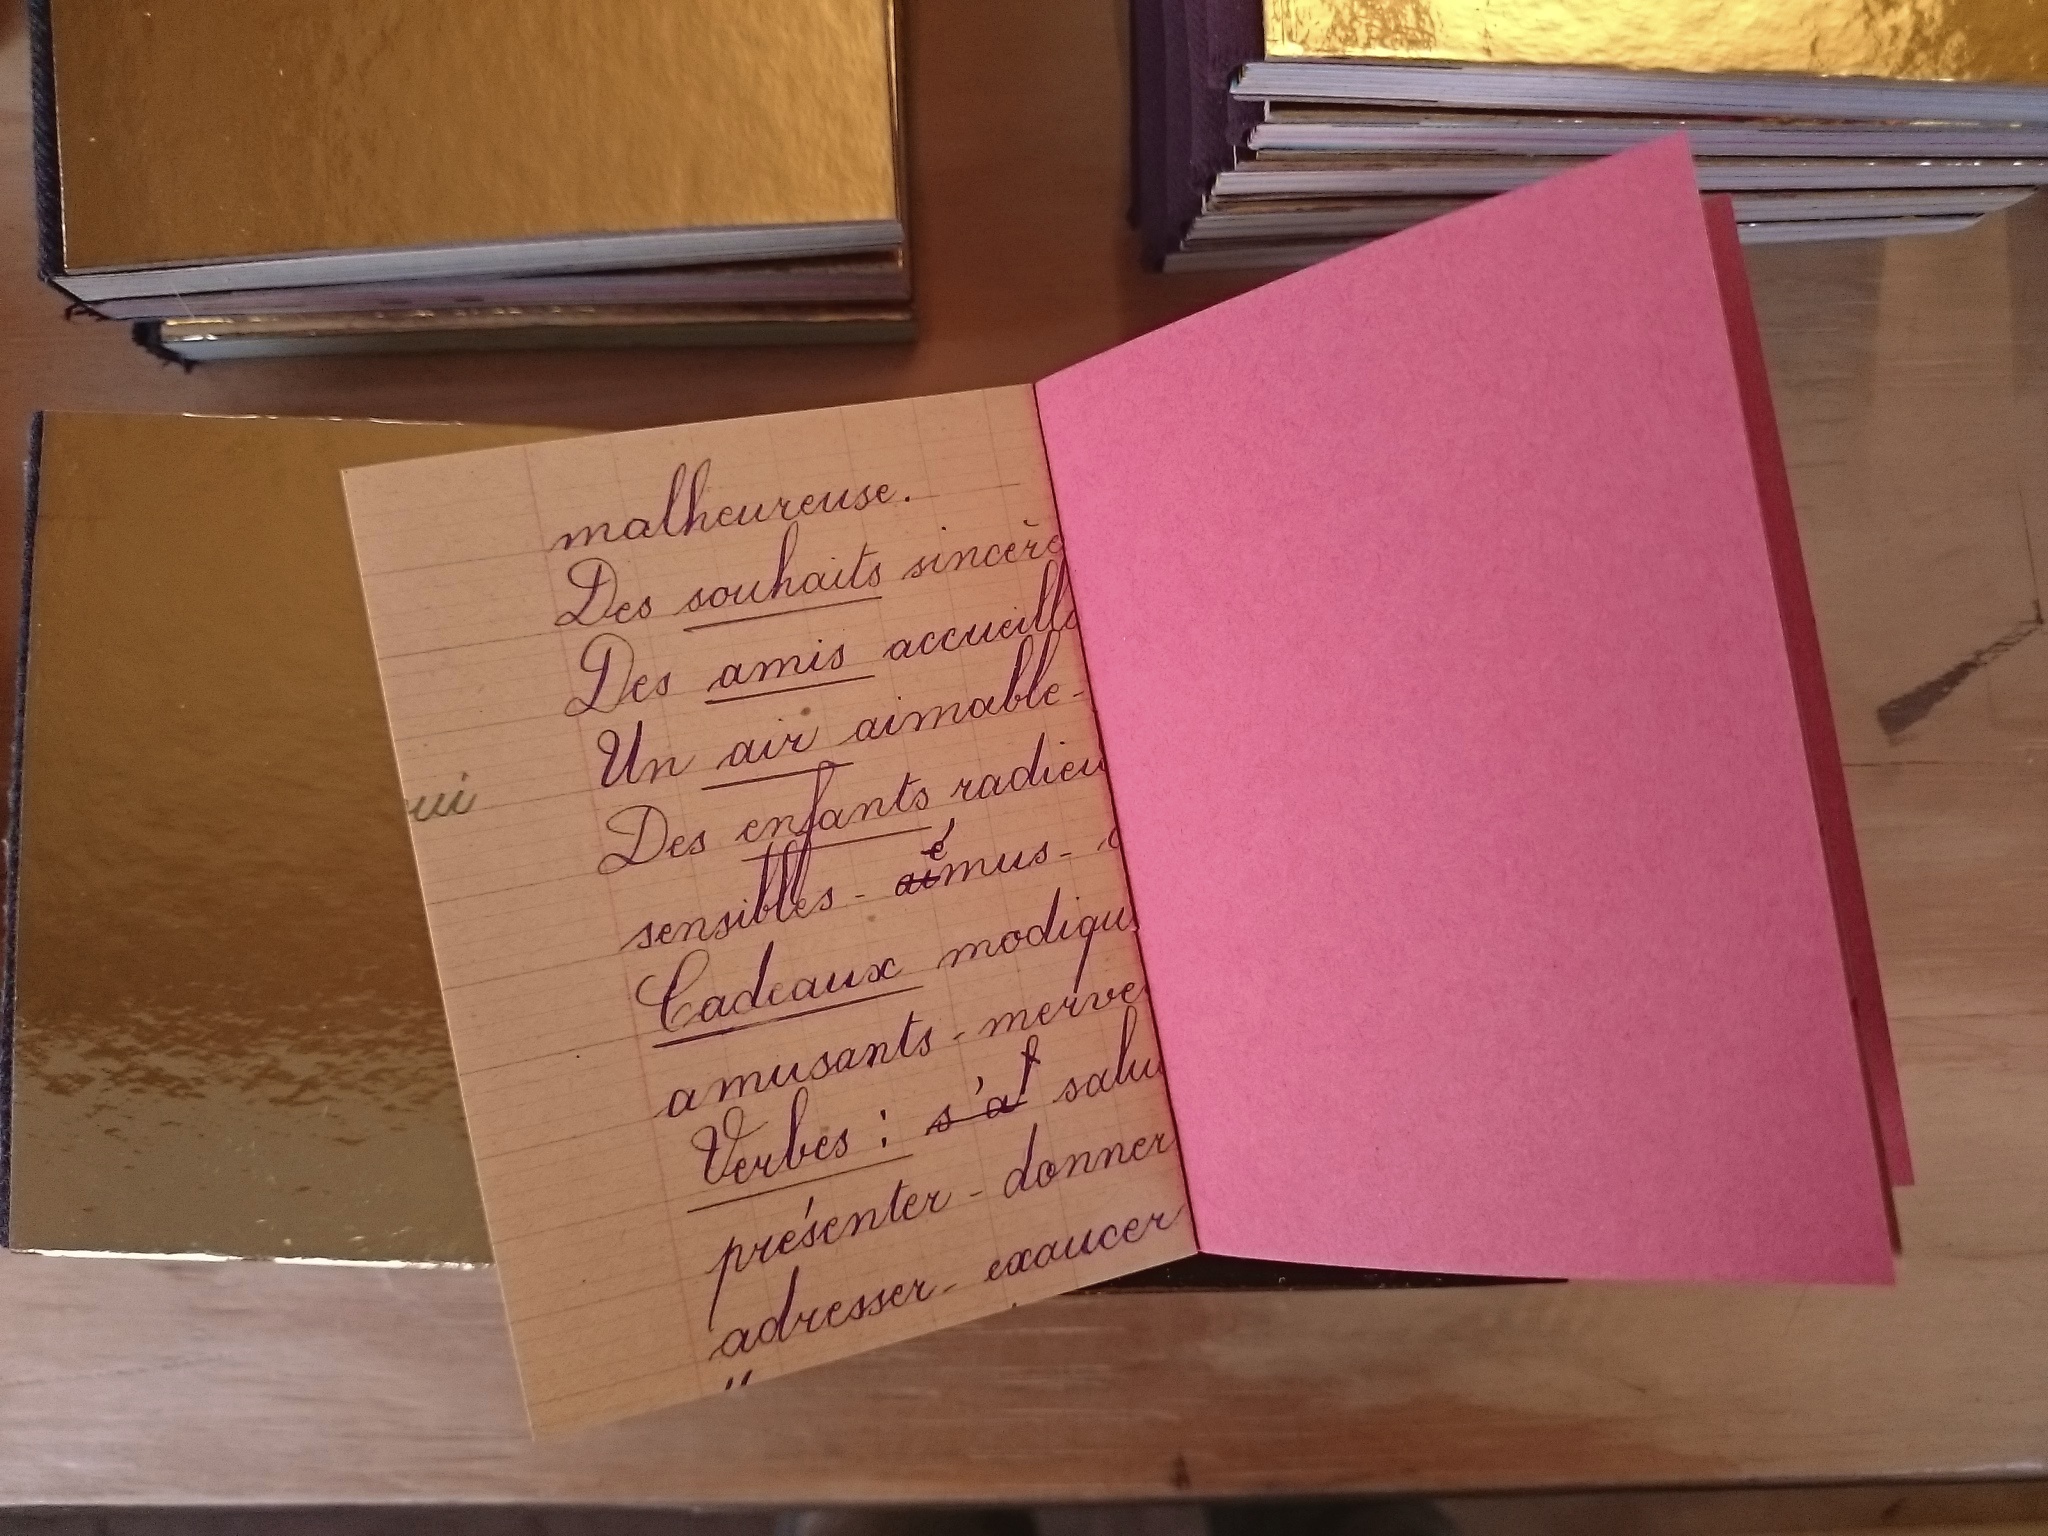 malheureuse.
Des souhaits sincère
Des amis accueilla
Un air aimable -
Des enfants radieu
ui
sensibles - aiémus -
Cadeaux modiqu
amusants - merve
Verbes : s'at salu
présenter - donner
adresser - exaucer